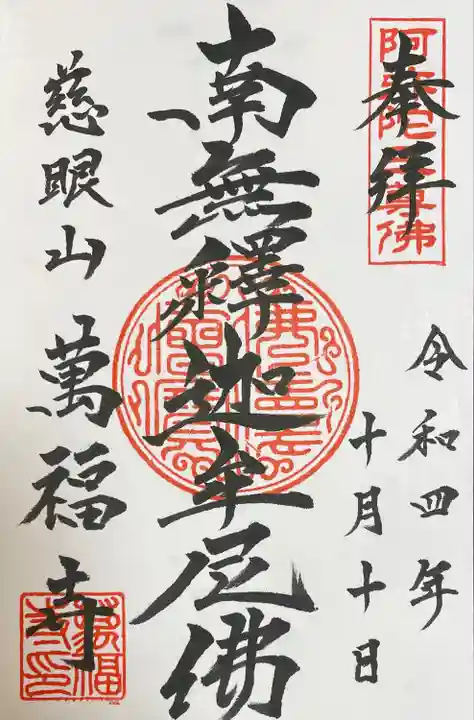 奉拝
阿弥陀三尊佛
令和四年
十月十日
南無釋迦牟尼佛
慈眼山 萬福寺
萬福寺印